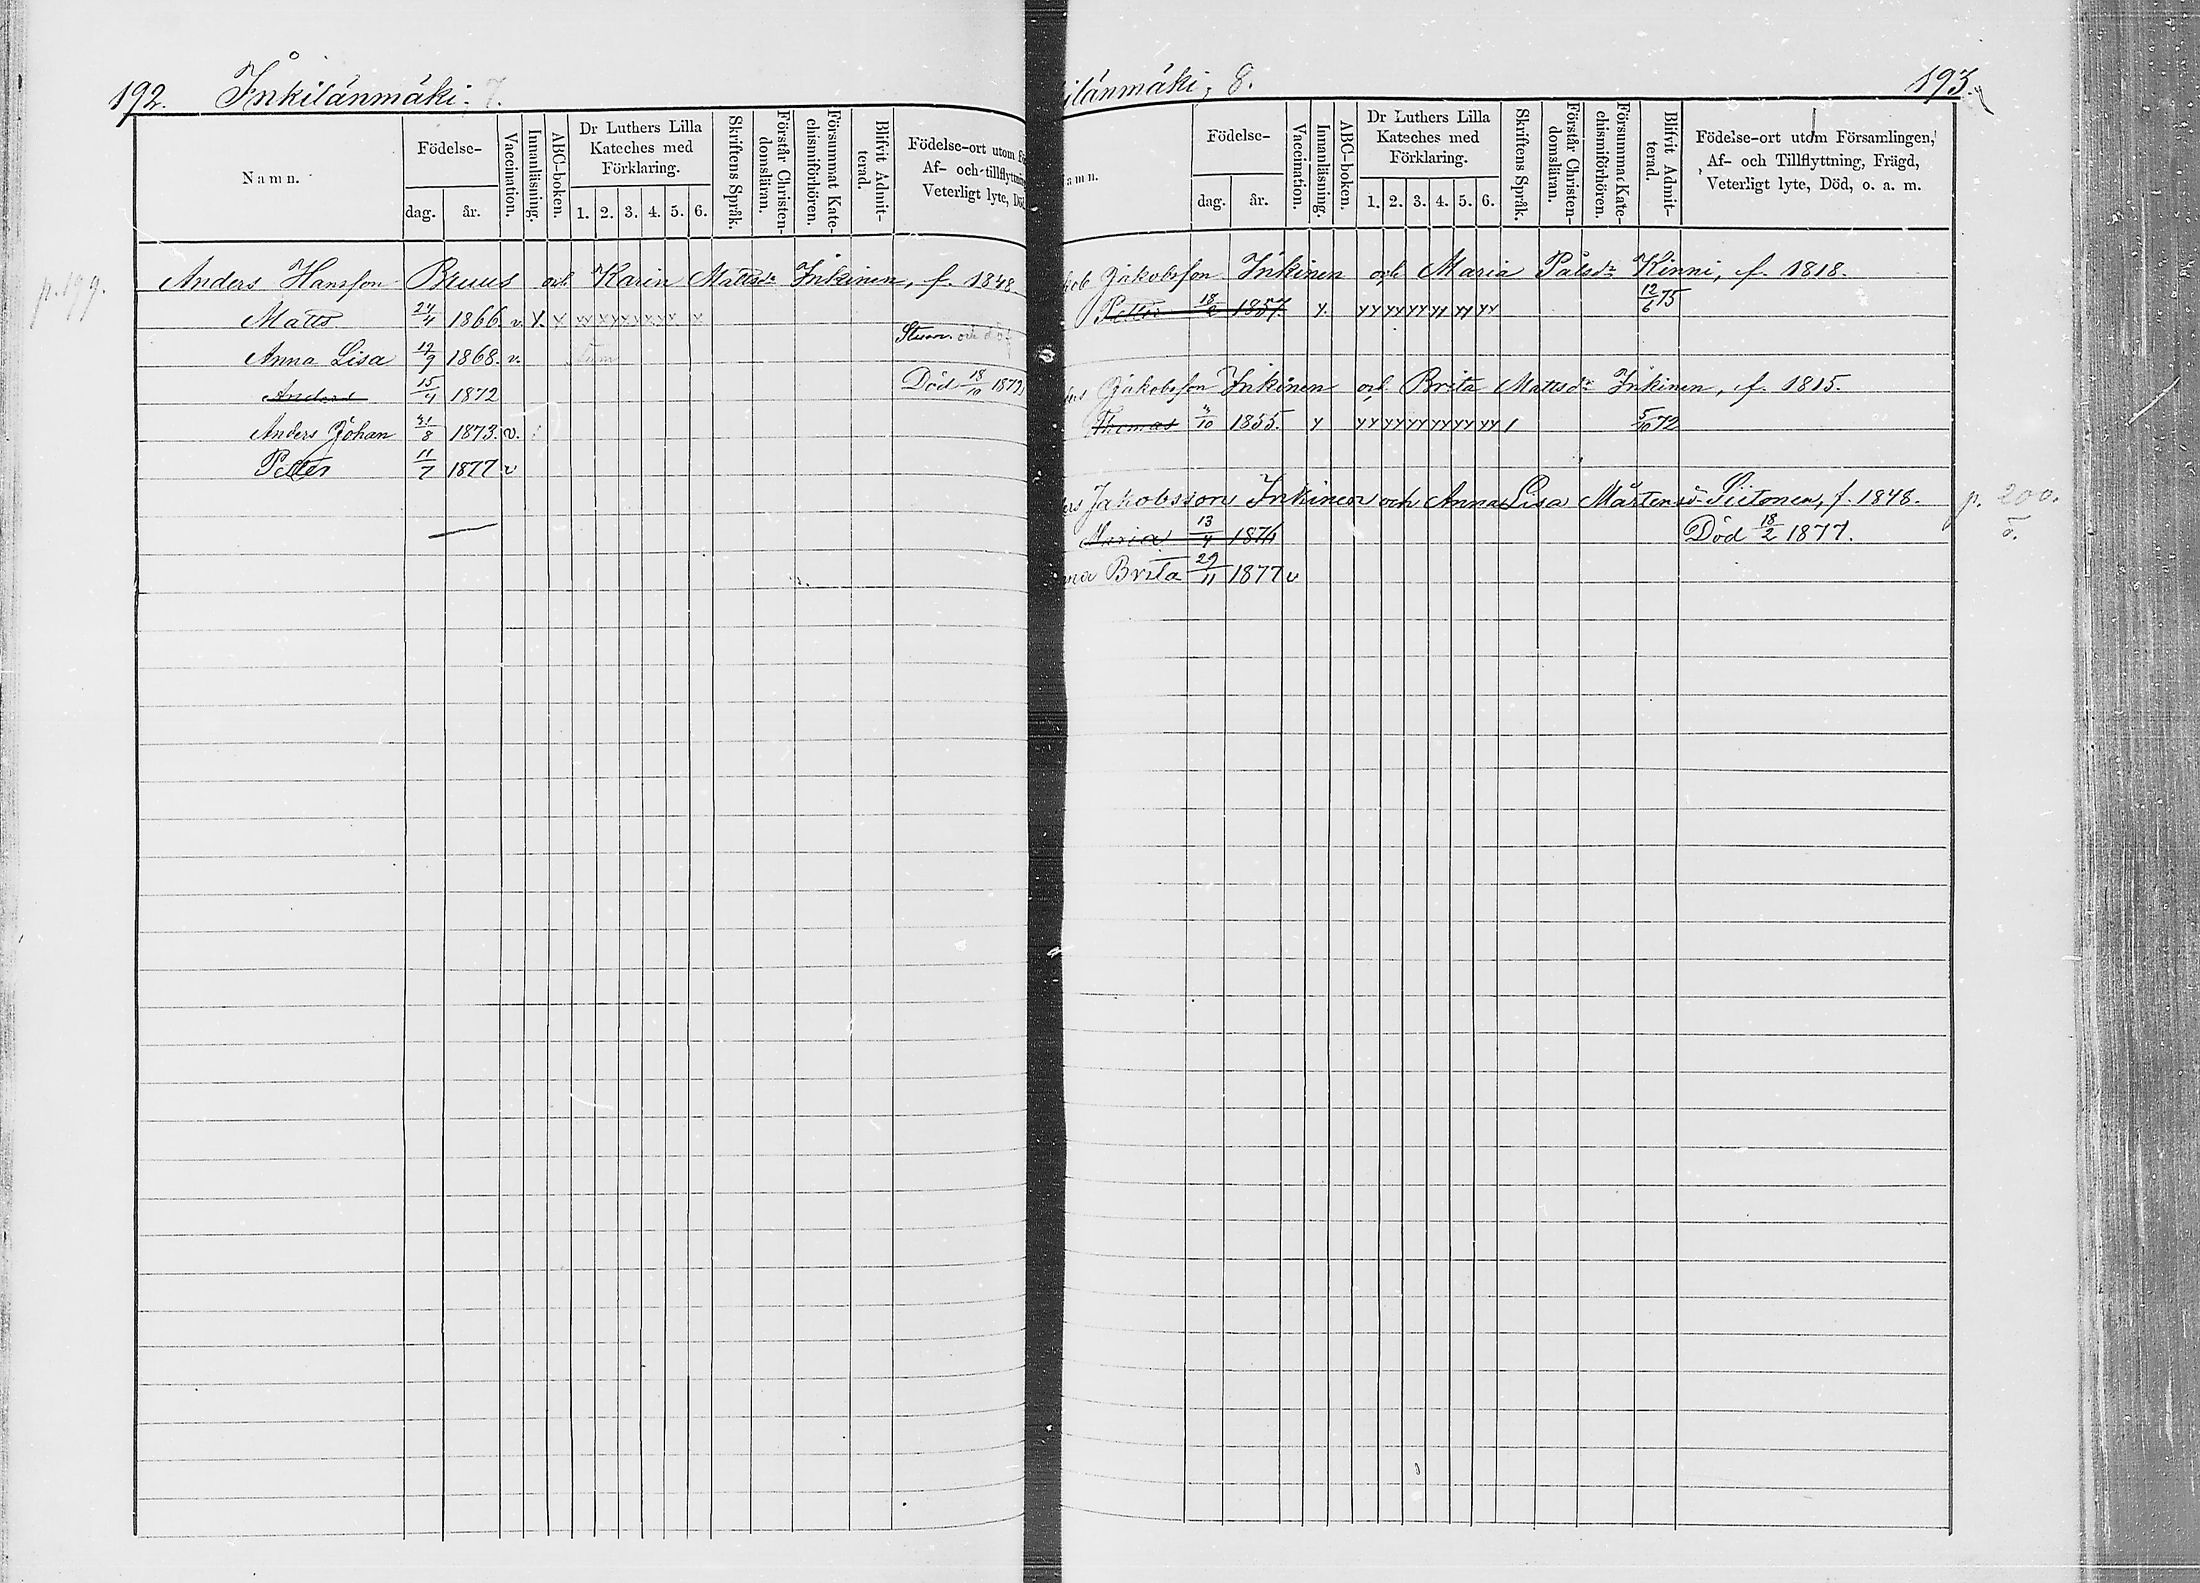 192. Inkilänmäki. 7.
Namn.
Födelse-
dag. år.
Vaccination.
Innanläsning.
ABC-boken.
Dr Luthers Lilla
Kateches med
Förklaring.
1. 2. 3. 4. 5. 6.
Skriftens Språk.
Förstår Christen-
domsläran.
Försummat Kate-
chismiförhören.
Blifvit Admit-
terad.
Födelse-ort utom
Af- och tillflyttning
Veterligt lyte, Död
p. 199.
Anders Hansson Bruus och Karin Mattsdr Inkinen, f. 1848
Matts 24/4 1866. v. x x xx xx xx xx xx x
Anna Lisa 12/9 1868. v. Stum och döf
Anders 15/4 1872 Död 18/10 1872
Anders Johan 31/8 1873. v.
Petter 11/7 1877 v
ilänmäki, 8. 193.
amn.
Födelse-
dag. år.
Vaccination.
Innanläsning.
ABC-boken.
Dr Luthers Lilla
Kateches med
Förklaring.
1. 2. 3. 4. 5. 6.
Skriftens Språk.
Förstår Christen-
domsläran.
Försummat Kate-
chismiförhören.
Blifvit Admit-
terad.
Födelse-ort utom Församlingen,
Af- och Tillflyttning, Frägd,
Veterligt lyte, Död, o. a. m.
kob Jakobsson Inkinen och Maria Pålsdr Kinni, f. 1818.
Petter 18/2 1857. y. yy yy yy yy yy yy 12/6 75
Jakobsson Inkinen och Brita Mattsdr Inkinen, f. 1815.
Thomas 3/10 1855. y yy yy yy yy yy yy 1 5/10 72
ers Jakobsson Inkinen och Anna Lisa Mårtensd. Piitonen, f. 1848. p. 200.
Maria 13/4 1874 Död 18/2 1877. ö.
na Brita 29/11 1877 v